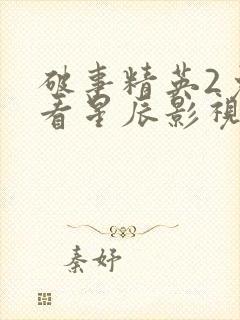 破事精英2
看星辰影視
秦妤